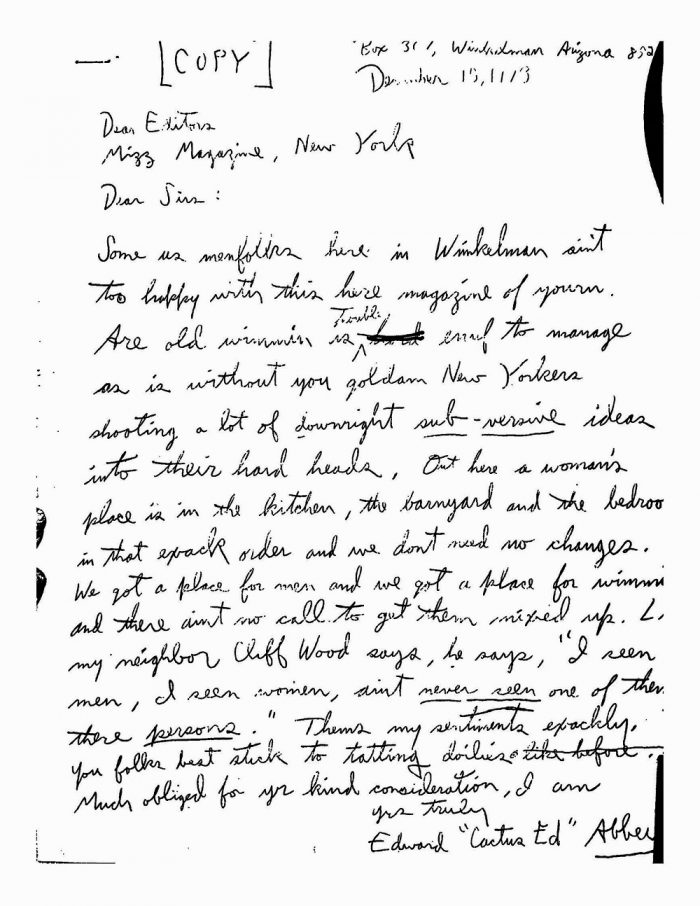 [COPY]
Box 307, Winkelman Arizona 852
December 15, 1973
Dear Editors
Mizz Magazine, New York
Dear Sirs :
Some us menfolks here in Winkelman aint
too happy with this here magazine of yourn.
Trouble
Are old wimmin is enuf to manage
as is without you goldam New Yorkers
shooting a lot of downright sub-versive ideas
into their hard heads, Out here a woman's
place is in the kitchen, the barnyard and the bedroo
in that exack order and we don't need no changes.
We got a place for men and we got a place for wimmi
and there aint no call to get them mixed up. L
my neighbor Cliff Wood says, he says, "I seen
men, I seen women, aint never seen one of them
there persons." Thems my sentiments exackly.
You folks best stick to tatting doilies like before.
Much obliged for yr kind consideration, I am
yrs truly
Edward "Cactus Ed" Abbey